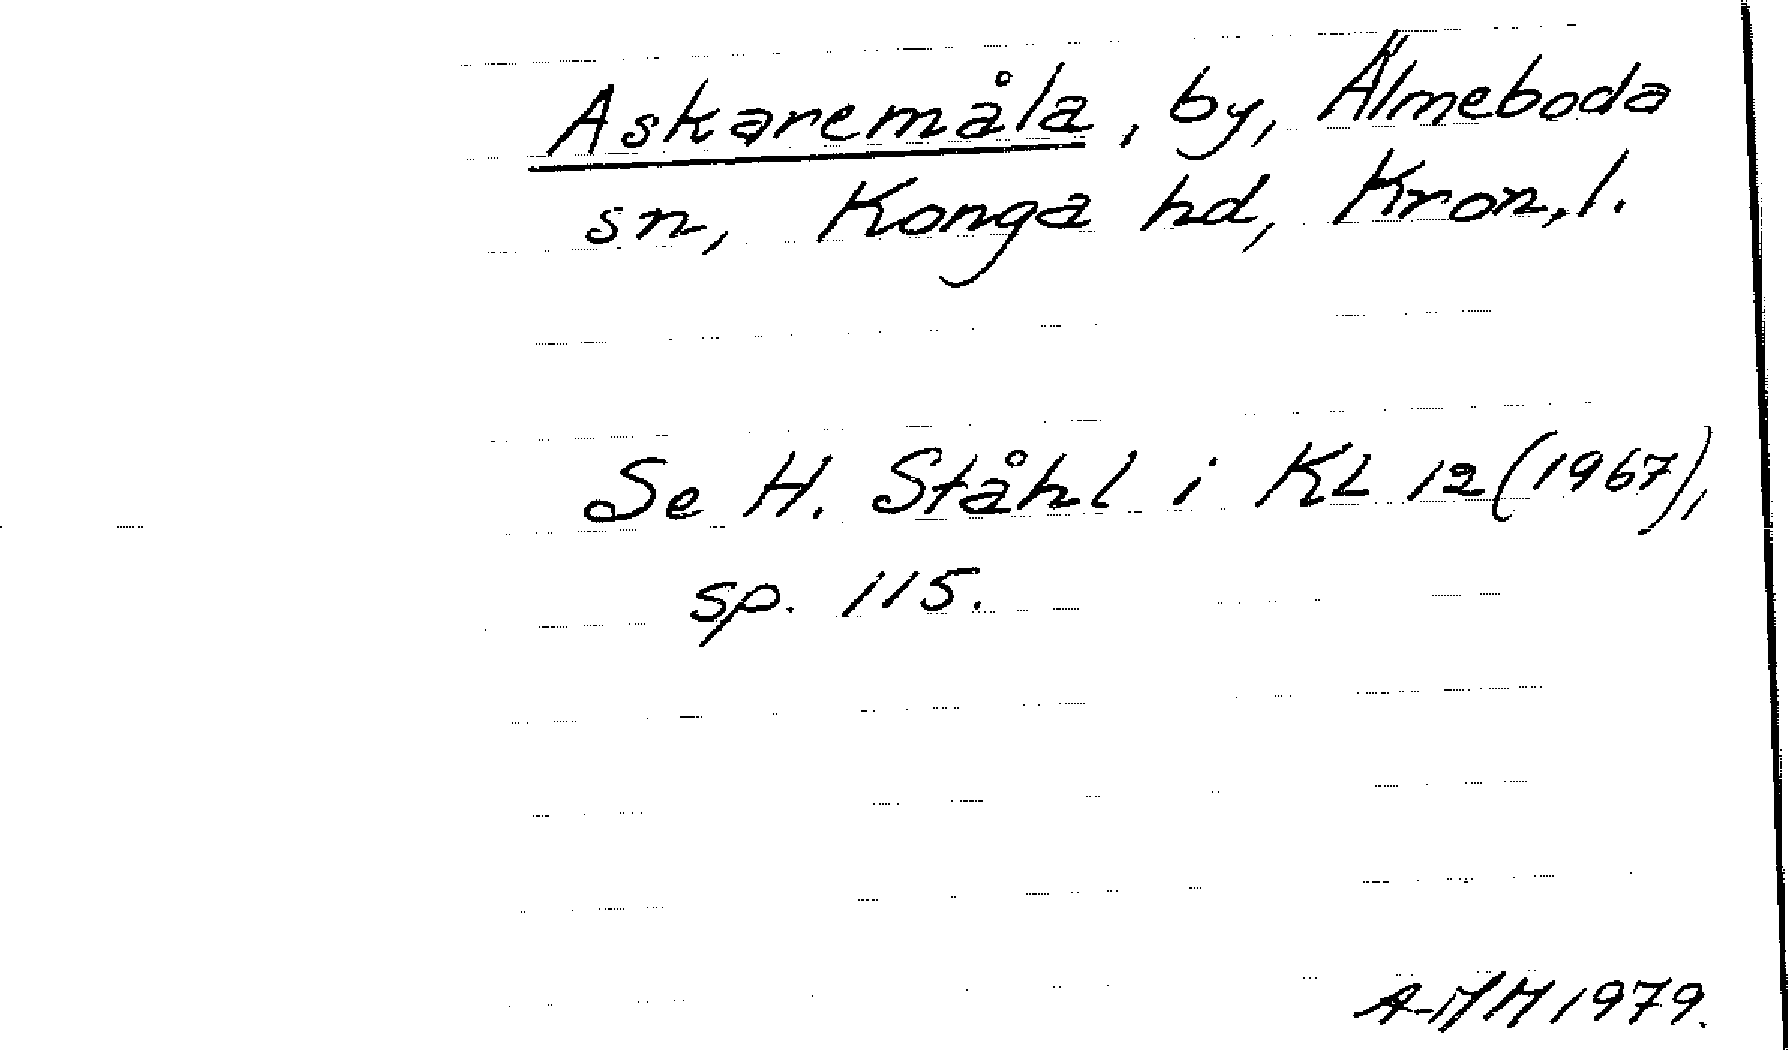 Askaremåla, by, Älmeboda
sn, Konga hd, Kron.l.
Se H. Ståhl i KL 12 (1967),
sp. 115.
1979.